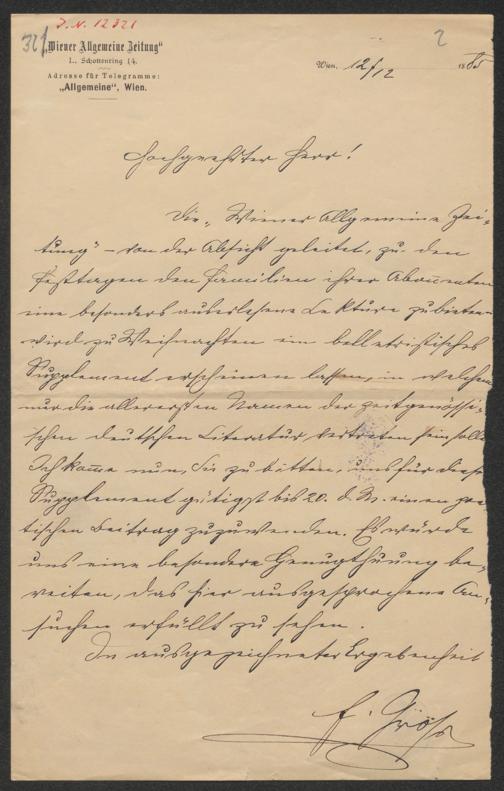 J. N. 12321
32/
2
„Wiener Allgemeine Zeitung“
I., Schottenring 14.
Adresse für Telegramme:
„Allgemeine“, Wien.
Wien, 12/12 1885
Hochgeehrter Herr!
Die „Wiener Allgemeine Zei-
tung“ – von der Absicht geleitet, zu den
Festtagen den Familien ihrer Abonenten
eine besonders auserlesene Lektüre zu bieten
wird zu Weihnachten ein belletristisches
Supplement erscheinen lassen, in welchem
nur die allerersten Namen der zeitgenössi-
schen deutschen Literatur vertreten sein sollen
Ich kome nun, Sie zu bitten, uns für diese
Supplement gütigst bis 20. d. M. einen poe-
tischen Beitrag zuzuwenden. Es würde
uns eine besondere Genugthuung be-
reiten, das hier ausgesprochene An-
suchen erfüllt zu sehen.
In ausgezeichneter Ergebenheit
F. Groß